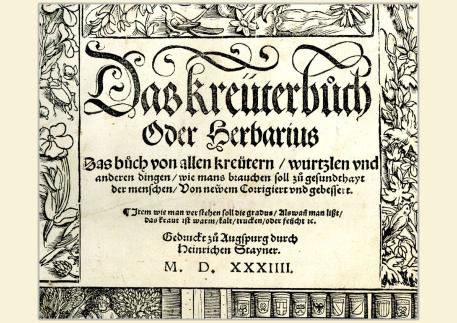 Das kreüterbůch
Oder Herbarius
Das bůch von allen kreütern / wurtzlen vnd
anderen dingen / wie mans brauchen soll zů gesundthayt
der menschen / Von newem Corrigiert vnd gebessert.
¶ Item wie man verstehen soll die gradus / Als wañ man lißt /
das kraut ist warm / kalt / trucken / oder feücht ꝛc.
Gedruckt zů Augspurg durch
Heinrichen Stayner.
M. D. XXXIIII.